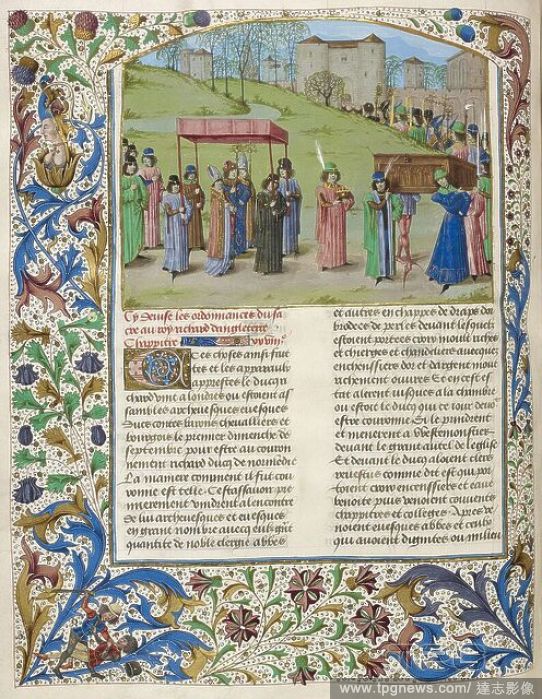 Cy Sensuit les ordonnances du sa
cre au roy richard dangleterre
Chappitre xxviiie
Ces choses ainsi fait
tes et les apparaulx
apprestes le duc ri
chard vint a londres ou estoient as
sambles archevesques evesques
Ducs contes barons chevalliers et
bourgois le premier dimenche de
septembre pour estre au couron
nement richard ducq de normēdie
La maniere comment il fut cou
ronne est telle
merement vindrent alencontre
de lui archevesques et evesques
en grant nombre aveuc eulx grāt
quantite de noble clergie abbes
et autres en chappes de draps do
brodees de perles devant lesquelz
estoient portees croix moult riches
et chierges et chandeliers avecques
enchenssiers dor et dargent moult
richement ouvres Et en cest es
tat alerent jusques a la chambre
ou estoit le ducq qui ce jour devoit
estre couronne Si le prindrent
et menerent a Westemonstier
devant le grant autel de leglise
Et devant le ducq aloient clers
revestus comme dit est qui por
toient croix encenssiers et eaue
benoite puis venoient couvents
chappitres et colleges Apres ve
noient evesques abbes et ceulx
qui avoient dignites ou milieu
www.tpgnews.com/ 達志影像